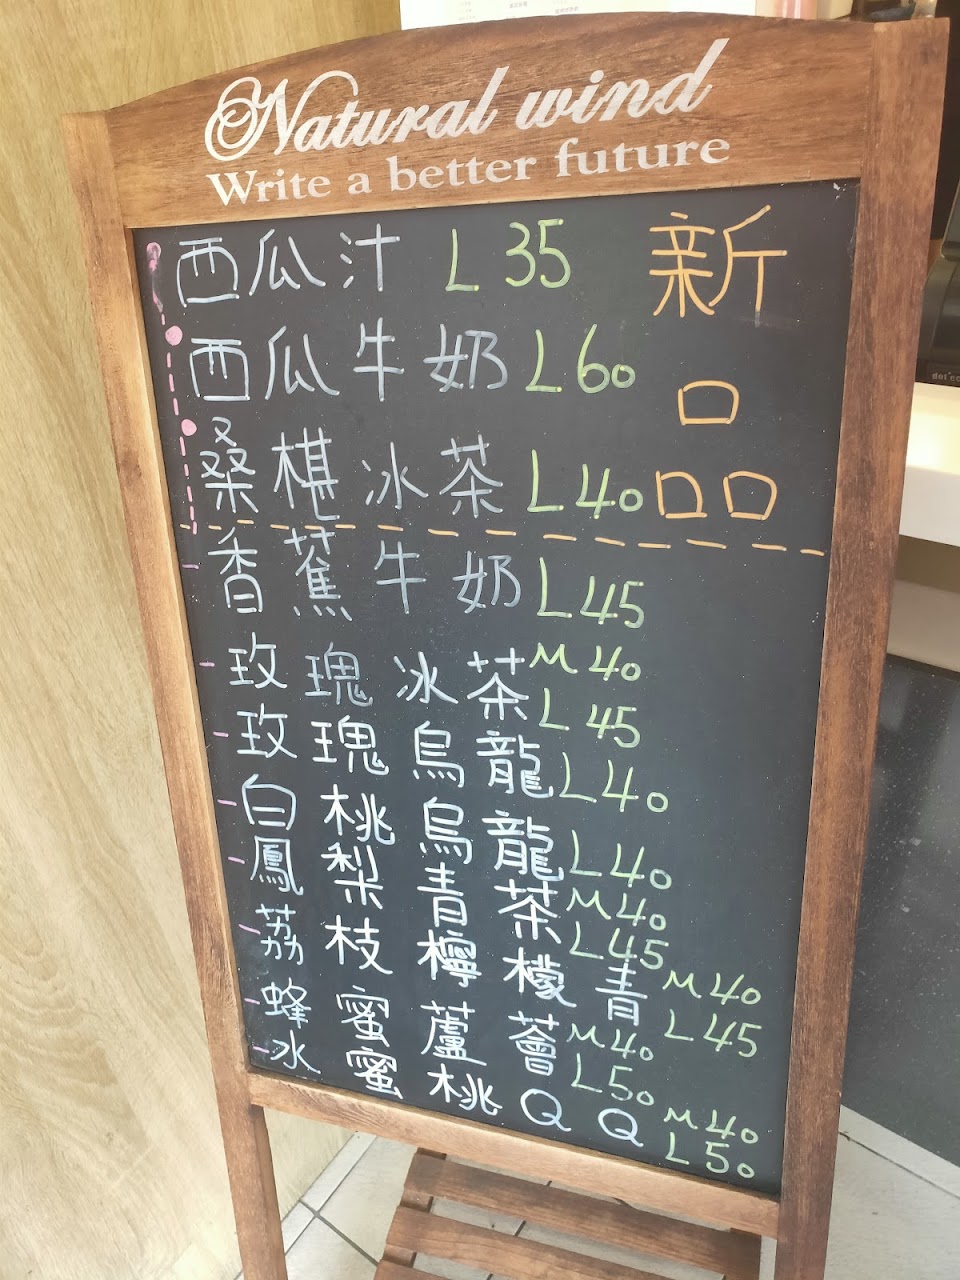 Natural wind
Write a better future
新品
西瓜汁 L 35
西瓜牛奶 L 60
桑椹冰茶 L 40
香蕉牛奶 L 45
玫瑰冰茶 M 40 L 45
玫瑰烏龍 L 40
白桃烏龍 L 40
鳳梨青茶 M 40 L 45
荔枝檸檬青 M 40 L 45
蜂蜜蘆薈 M 40 L 50
水蜜桃QQ M 40 L 50